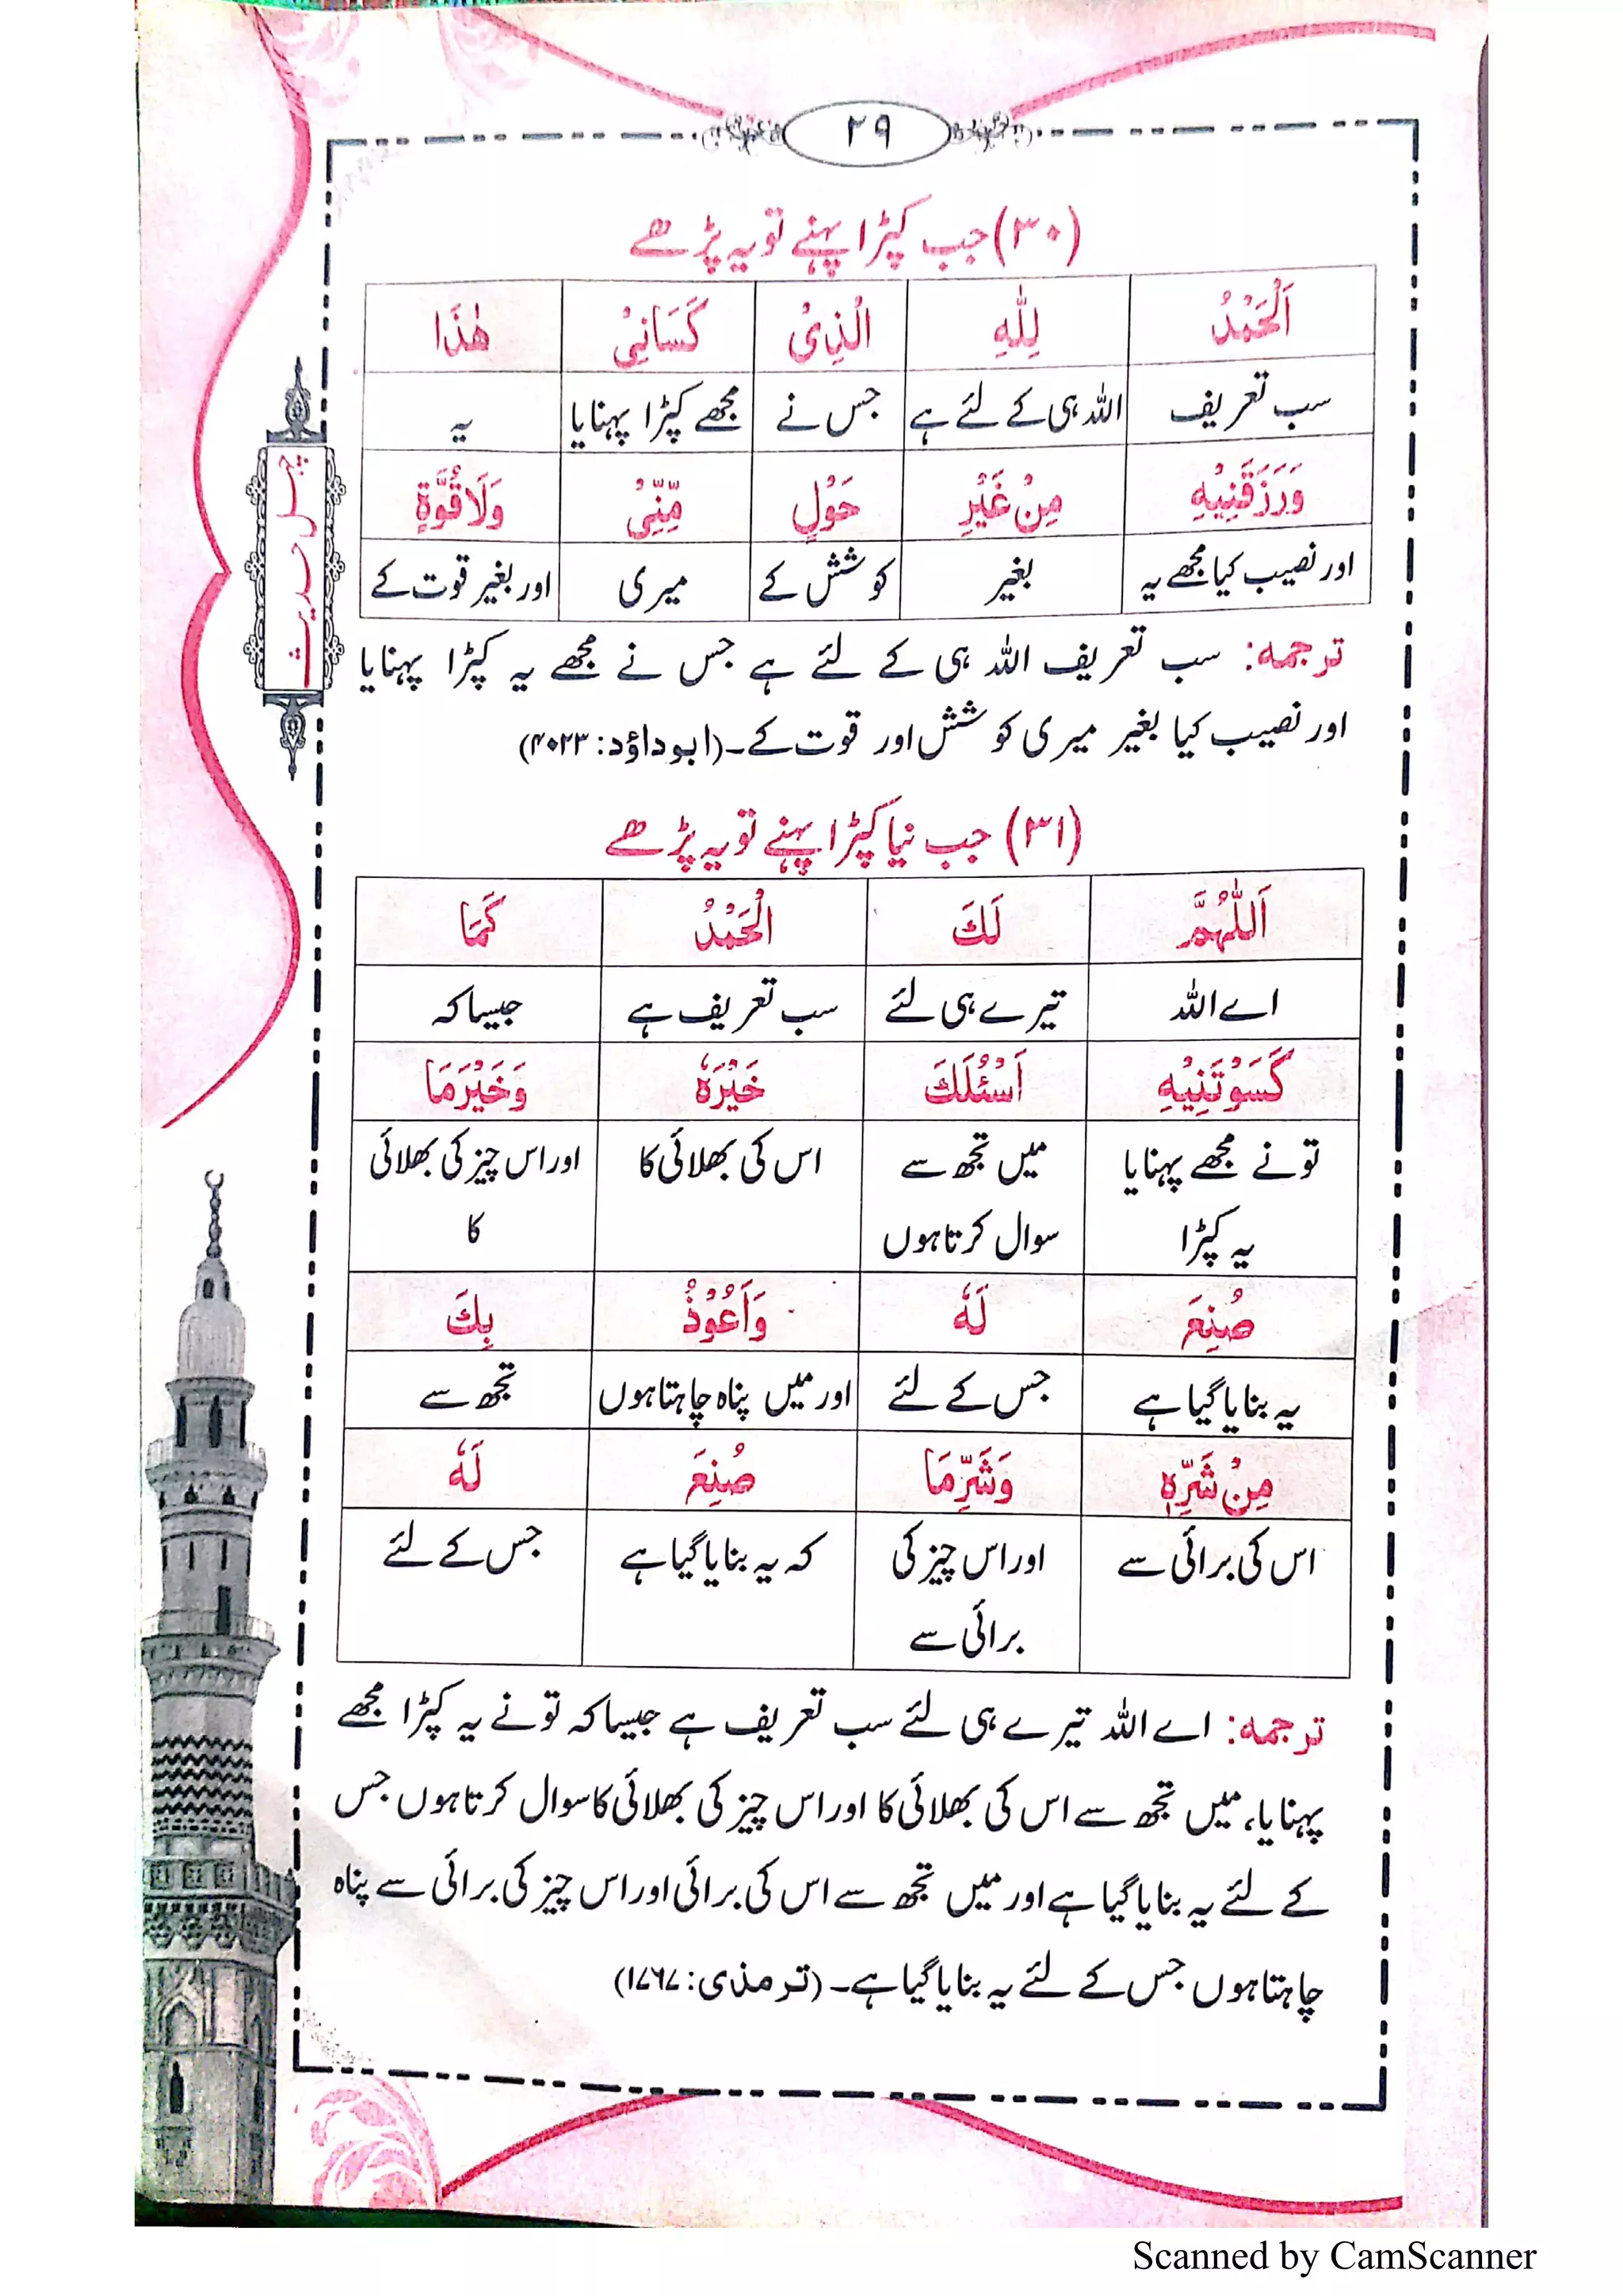 ۲۹
(۳۰) جب کپڑا پہنے تو یہ پڑھے
اَلْحَمْدُ لِلّٰهِ الَّذِیْ كَسَانِیْ هٰذَا
سب تعریف اللہ ہی کے لئے ہے جس نے مجھے کپڑا پہنایا یہ
وَرَزَقَنِیْهِ مِنْ غَیْرِ حَوْلٍ مِّنِّیْ وَلَا قُوَّةٍ
اور نصیب کیا مجھے یہ بغیر کوشش کے میری اور بغیر قوت کے
ترجمہ: سب تعریف اللہ ہی کے لئے ہے جس نے مجھے یہ کپڑا پہنایا
اور نصیب کیا بغیر میری کوشش اور قوت کے۔ (ابوداؤد: ۴۰۲۳)
(۳۱) جب نیا کپڑا پہنے تو یہ پڑھے
اَللّٰهُمَّ لَكَ الْحَمْدُ كَمَا
اے اللہ تیرے ہی لئے سب تعریف ہے جیسا کہ
كَسَوْتَنِیْهِ اَسْئَلُكَ خَیْرَهٗ وَخَیْرَمَا
تو نے مجھے پہنایا میں تجھ سے اس کی بھلائی کا اور اس چیز کی بھلائی
یہ کپڑا سوال کرتا ہوں کا
صُنِعَ لَهٗ وَاَعُوْذُ بِكَ
یہ بنایا گیا ہے جس کے لئے اور میں پناہ چاہتا ہوں تجھ سے
مِنْ شَرِّهٖ وَشَرِّمَا صُنِعَ لَهٗ
اس کی برائی سے اور اس چیز کی کہ یہ بنایا گیا ہے جس کے لئے
برائی سے
ترجمہ: اے اللہ تیرے ہی لئے سب تعریف ہے جیسا کہ تو نے یہ کپڑا مجھے
پہنایا، میں تجھ سے اس کی بھلائی کا اور اس چیز کی بھلائی کا سوال کرتا ہوں جس
کے لئے یہ بنایا گیا ہے اور میں تجھ سے اس کی برائی اور اس چیز کی برائی سے پناہ
چاہتا ہوں جس کے لئے یہ بنایا گیا ہے۔ (ترمذی: ۱۷۶۷)
چہل حدیث
Scanned by CamScanner